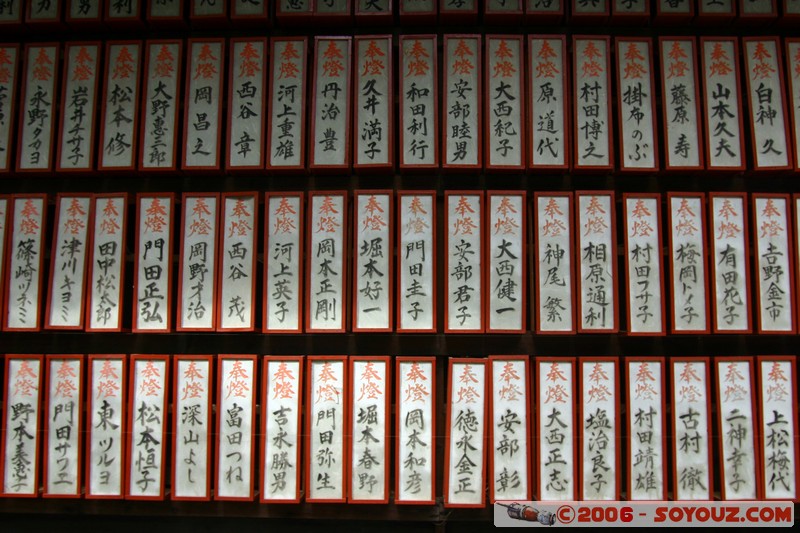 奉燈 白神 久
奉燈 山本久夫
奉燈 藤原 寿
奉燈 掛布のぶ
奉燈 村田博之
奉燈 原 道代
奉燈 大西紀子
奉燈 安部睦男
奉燈 和田利行
奉燈 久井満子
奉燈 丹治 豊
奉燈 河上重雄
奉燈 西谷 章
奉燈 岡 昌之
奉燈 大野恵三郎
奉燈 松本 修
奉燈 岩井チサ子
奉燈 永野タカヨ
奉燈 吉野金市
奉燈 有田花子
奉燈 梅岡トメ子
奉燈 村田フサ子
奉燈 相原通利
奉燈 神尾 繁
奉燈 大西健一
奉燈 安部君子
奉燈 門田圭子
奉燈 堀本好一
奉燈 岡本正剛
奉燈 河上英子
奉燈 西谷 茂
奉燈 岡野才治
奉燈 門田正弘
奉燈 田中松太郎
奉燈 津川キヨミ
奉燈 篠崎ツネミ
奉燈 上松梅代
奉燈 二神幸子
奉燈 古村 徹
奉燈 村田靖雄
奉燈 塩治良子
奉燈 大西正志
奉燈 安部 彰
奉燈 徳永金正
奉燈 岡本和彦
奉燈 堀本春野
奉燈 門田弥生
奉燈 吉永勝男
奉燈 富田つね
奉燈 深山よし
奉燈 松本恒子
奉燈 東 ツルヨ
奉燈 門田サワエ
奉燈 野本
©2006 - SOYOUZ.COM